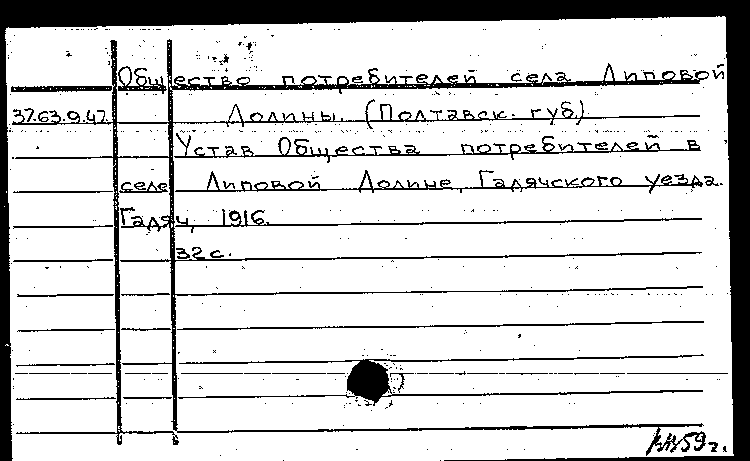 Общество потребителей села Липовой
37.63.9.42. Долины. (Полтавск. губ.)
Устав Общества потребителей в
селе Липовой Долине, Гадячского уезда.
Гадяч, 1916.
32 с.
59 г.